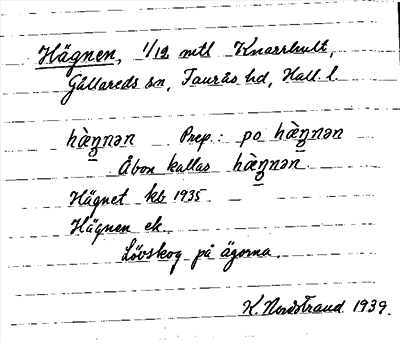 Hägnen, 1/12 mtl Knarrhult,
Gällareds sn, Faurås hd, Hall. l.
hæ̀ŋnən Prep.: po hæ̀ŋnən
Åbon kallas hæ̀ŋnən.
Hägnet kb 1935
Hägnen ek.
Lövskog på ägorna.
K. Nordstrand 1939.